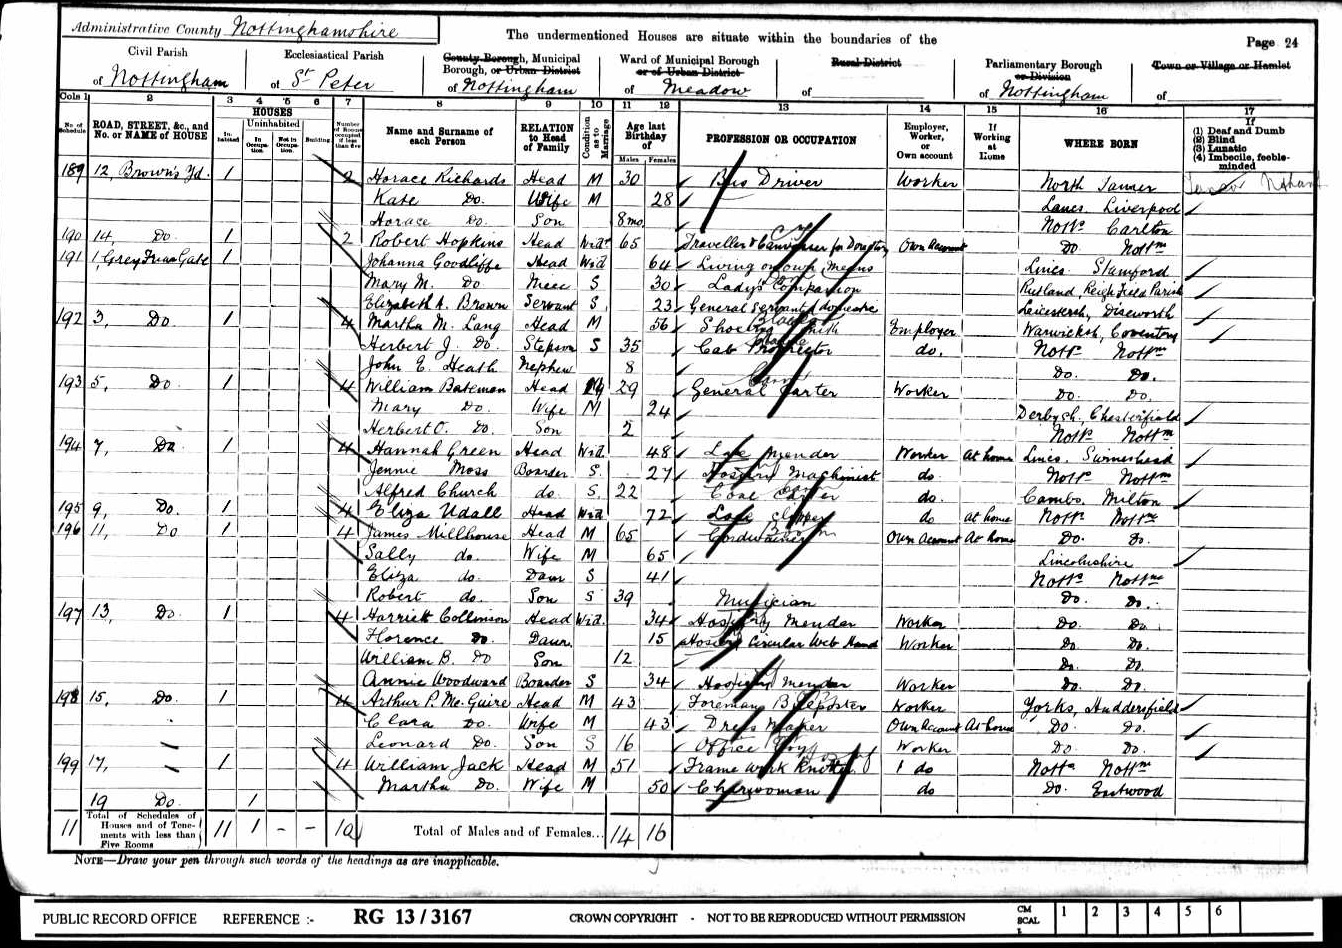 Administrative County Nottinghamshire
The undermentioned Houses are situate within the boundaries of the
Page 24
Civil Parish of Nottingham
Ecclesiastical Parish of St Peter
County Borough, Municipal Borough, or Urban District of Nottingham
Ward of Municipal Borough or of Urban District of Meadow
Rural District of
Parliamentary Borough or Division of Nottingham
Town or Village or Hamlet of
Cols 1 2 3 4 5 6 7 8 9 10 11 12 13 14 15 16 17
No. of Schedule
ROAD, STREET, &c., and No. or NAME of HOUSE
HOUSES
Inhabited
Uninhabited
In Occupation.
Not in Occupation.
Building
Number of Rooms occupied if less than five
Name and Surname of each Person
RELATION to Head of Family
Condition as to Marriage
Age last Birthday of
Males Females
PROFESSION OR OCCUPATION
Employer, Worker, or Own account
If Working at Home
WHERE BORN
If (1) Deaf and Dumb (2) Blind (3) Lunatic (4) Imbecile, feeble-minded
189 12, Brown's Yd. 1 2 Horace Richards Head M 30 Bus Driver Worker North
Kate Do. Wife M 28 Lancs Liverpool
Horace Do. Son 8mo. Notts Carlton
190 14, Do. 1 2 Robert Hopkins Head Widr 65 Traveller & Canvasser for Own Account Do. Nottm
191 1, Grey Friar Gate 1 Johanna Goodliffe Head Wid 64 Living on own Means Lincs. Stamford
Mary M. Do Niece S 30 Lady's Companion Rutland, Parish
Elizabeth A. Brown Servant S. 23 General Servant domestic Leicestersh, Diseworth
192 3, Do. 1 4 Martha M. Lang Head M 56 Shoeing Smith Employer Warwicksh, Coventry
Herbert J. Do. Stepson S 35 Cab Proprietor do. Notts Nottm
John E. Heath Nephew 8 Do. Do.
193 5, Do 1 4 William Bateman Head M 29 General Carter Worker Do. Do.
Mary Do. Wife M 24 Derbysh. Chesterfield
Herbert O. Do. Son 2 Notts Nottm
194 7, Do 1 4 Hannah Green Head Wid. 48 Lace Mender Worker At home Lincs. Swineshead
Jennie Moss Boarder S. 27 Hosiery Machinist do. Notts Nottm
Alfred Church do. S. 22 Coal Carter do. Cambs. Milton
195 9, Do. 1 4 Eliza Udall Head Wid 72 Lace Clipper do At home Notts Nottm
196 11, Do 1 4 James Millhouse Head M 65 Cordwainer Own Account At home Do. Do.
Sally do. Wife M 65 Lincolnshire
Eliza do. Daur S 41 Notts Nottm
Robert do. Son S 39 Musician Do. Do.
197 13, Do. 1 4 Harriett Collinson Head Wid. 34 Hosiery Mender Worker Do. Do.
Florence Do. Daur. 15 Hosiery Circular Web Hand Worker Do Do
William B. Do Son 12 Do Do
Annie Woodward Boarder S 34 Hosiery Mender Worker Do. Do.
198 15, Do. 1 4 Arthur P. Mc.Guire Head M 43 Foreman Billposter Worker Yorks, Huddersfield
Clara Do. Wife M 43 Dress Maker Own Account At home Do Do.
Leonard Do. Son S 16 Office Boy Worker Do Do
199 17, 1 4 William Jack Head M 51 Frame Work Knitter do Notts Nottm
Martha Do. Wife M 50 Charwoman do Do. Eastwood
19 Do. 1
11 Total of Schedules of Houses and of Tenements with less than Five Rooms 11 1 - - 10 Total of Males and of Females... 14 16
NOTE—Draw your pen through such words of the headings as are inapplicable.
PUBLIC RECORD OFFICE REFERENCE :- RG 13 / 3167 CROWN COPYRIGHT - NOT TO BE REPRODUCED WITHOUT PERMISSION
CM SCAL 1 2 3 4 5 6